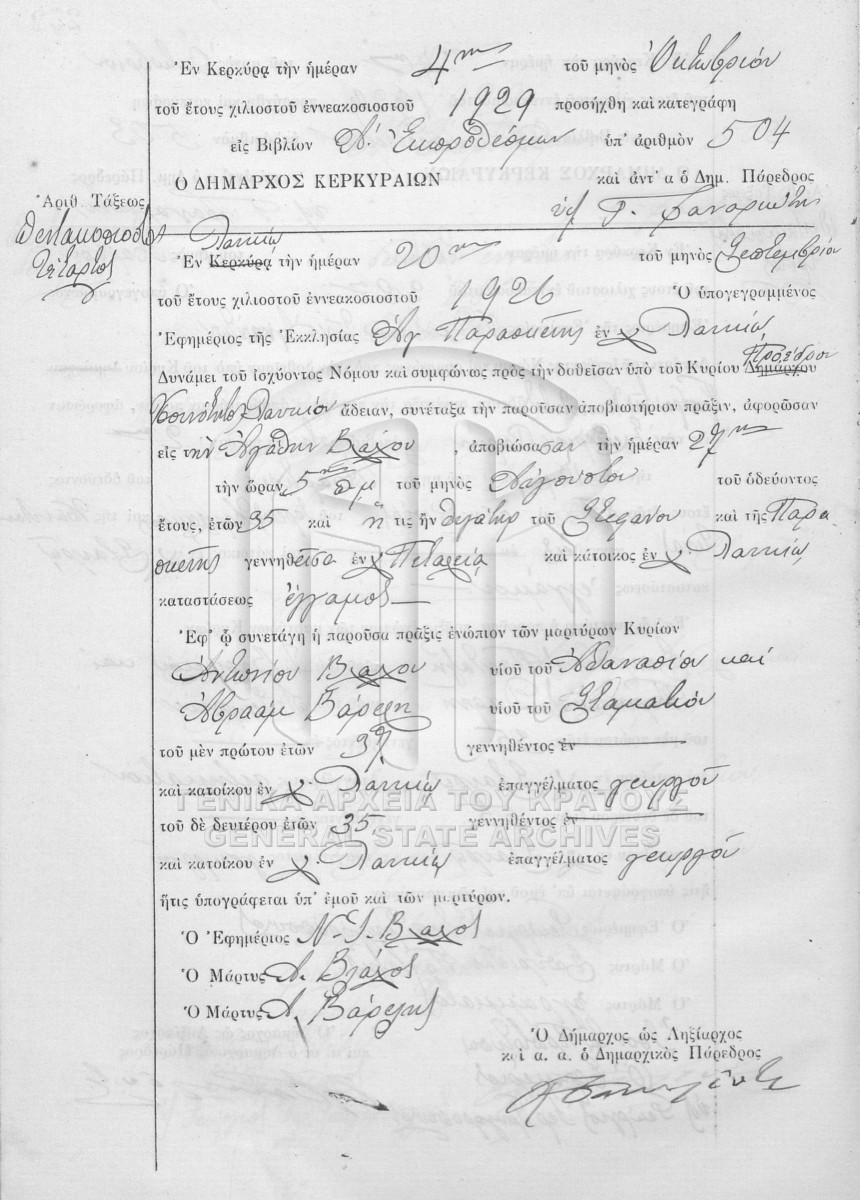 Ἐν Κερκύρᾳ τὴν ἡμέραν 4ην τοῦ μηνὸς Ὀκτωβρίου
τοῦ ἔτους χιλιοστοῦ ἐννεακοσιοστοῦ 1929 προσήχθη καὶ κατεγράφη
εἰς Βιβλίον Α΄. Ἐκπροθέσμων ὑπ' ἀριθμὸν 504
Ὁ ΔΗΜΑΡΧΟΣ ΚΕΡΚΥΡΑΙΩΝ καὶ ἀντ' α ὁ Δημ. Πάρεδρος
Ἀριθ. Τάξεως
Πεντακοσιοστὸς
Τέταρτος
Ἐν Κερκύρᾳ τὴν ἡμέραν 20ην τοῦ μηνὸς Σεπτεμβρίου
τοῦ ἔτους χιλιοστοῦ ἐννεακοσιοστοῦ 1926 Ὁ ὑπογεγραμμένος
Ἐφημέριος τῆς Ἐκκλησίας Ἁγ Παρασκευῆς ἐν χ.
Προέδρου
Δυνάμει τοῦ ἰσχύοντος Νόμου καὶ συμφώνως πρὸς τὴν δοθεῖσαν ὑπὸ τοῦ Κυρίου Δημάρχου
Κοινότητος ἄδειαν, συνέταξα τὴν παροῦσαν ἀποβιωτήριον πρᾶξιν, ἀφορῶσαν
εἰς τὴν Ἀγάθην Βλάχου , ἀποβιώσασαν τὴν ἡμέραν 27ην
τὴν ὥραν 5ην πμ τοῦ μηνὸς Αὐγούστου τοῦ ὁδεύοντος
ἔτους, ἐτῶν 35 καὶ ἥ τις ἦν θυγάτηρ τοῦ Στεφάνου καὶ τῆς Παρα
σκευῆς γεννηθεῖσα ἐν χ Πεταλείᾳ καὶ κάτοικος ἐν χ.
καταστάσεως ἔγγαμος
Ἐφ' ᾧ συνετάγη ἡ παροῦσα πρᾶξις ἐνώπιον τῶν μαρτύρων Κυρίων
Ἀντωνίου Βλάχου υἱοῦ τοῦ Ἀθανασίου καὶ
Ἀβραὰμ Βάρελη υἱοῦ τοῦ Σταματίου
τοῦ μὲν πρώτου ἐτῶν 37 γεννηθέντος ἐν
καὶ κατοίκου ἐν χ. ἐπαγγέλματος γεωργοῦ
ΓΕΝΙΚΑ ΑΡΧΕΙΑ ΤΟΥ ΚΡΑΤΟΥΣ
τοῦ δὲ δευτέρου ἐτῶν 35 γεννηθέντος ἐν
GENERAL STATE ARCHIVES
καὶ κατοίκου ἐν χ. ἐπαγγέλματος γεωργοῦ
ἥτις ὑπογράφεται ὑπ' ἐμοῦ καὶ τῶν μαρτύρων.
Ὁ Ἐφημέριος Ν. Ι. Βλάχος
Ὁ Μάρτυς Α. Βλάχος
Ὁ Μάρτυς Α. Βάρελης
Ὁ Δήμαρχος ὡς Ληξίαρχος
καὶ α. α. ὁ Δημαρχικὸς Πάρεδρος